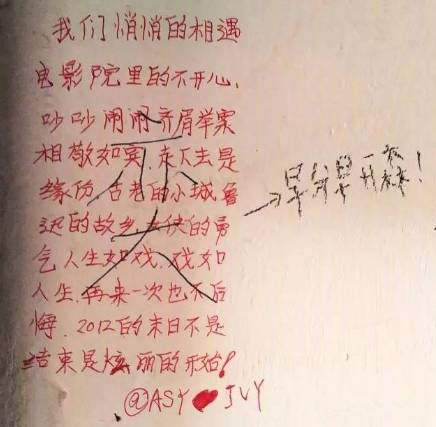 我们悄悄的相遇
电影院里的不开心.
吵吵闹闹 齐眉举案
相敬如宾.走下去是
缘份.古老的小城.鲁
迅的故乡.女侠的勇
气人生如戏.戏如
人生.再来一次也不后
悔.2012的末日不是
结束是炫丽的开始!
@ASY ❤ JVY
→早分早